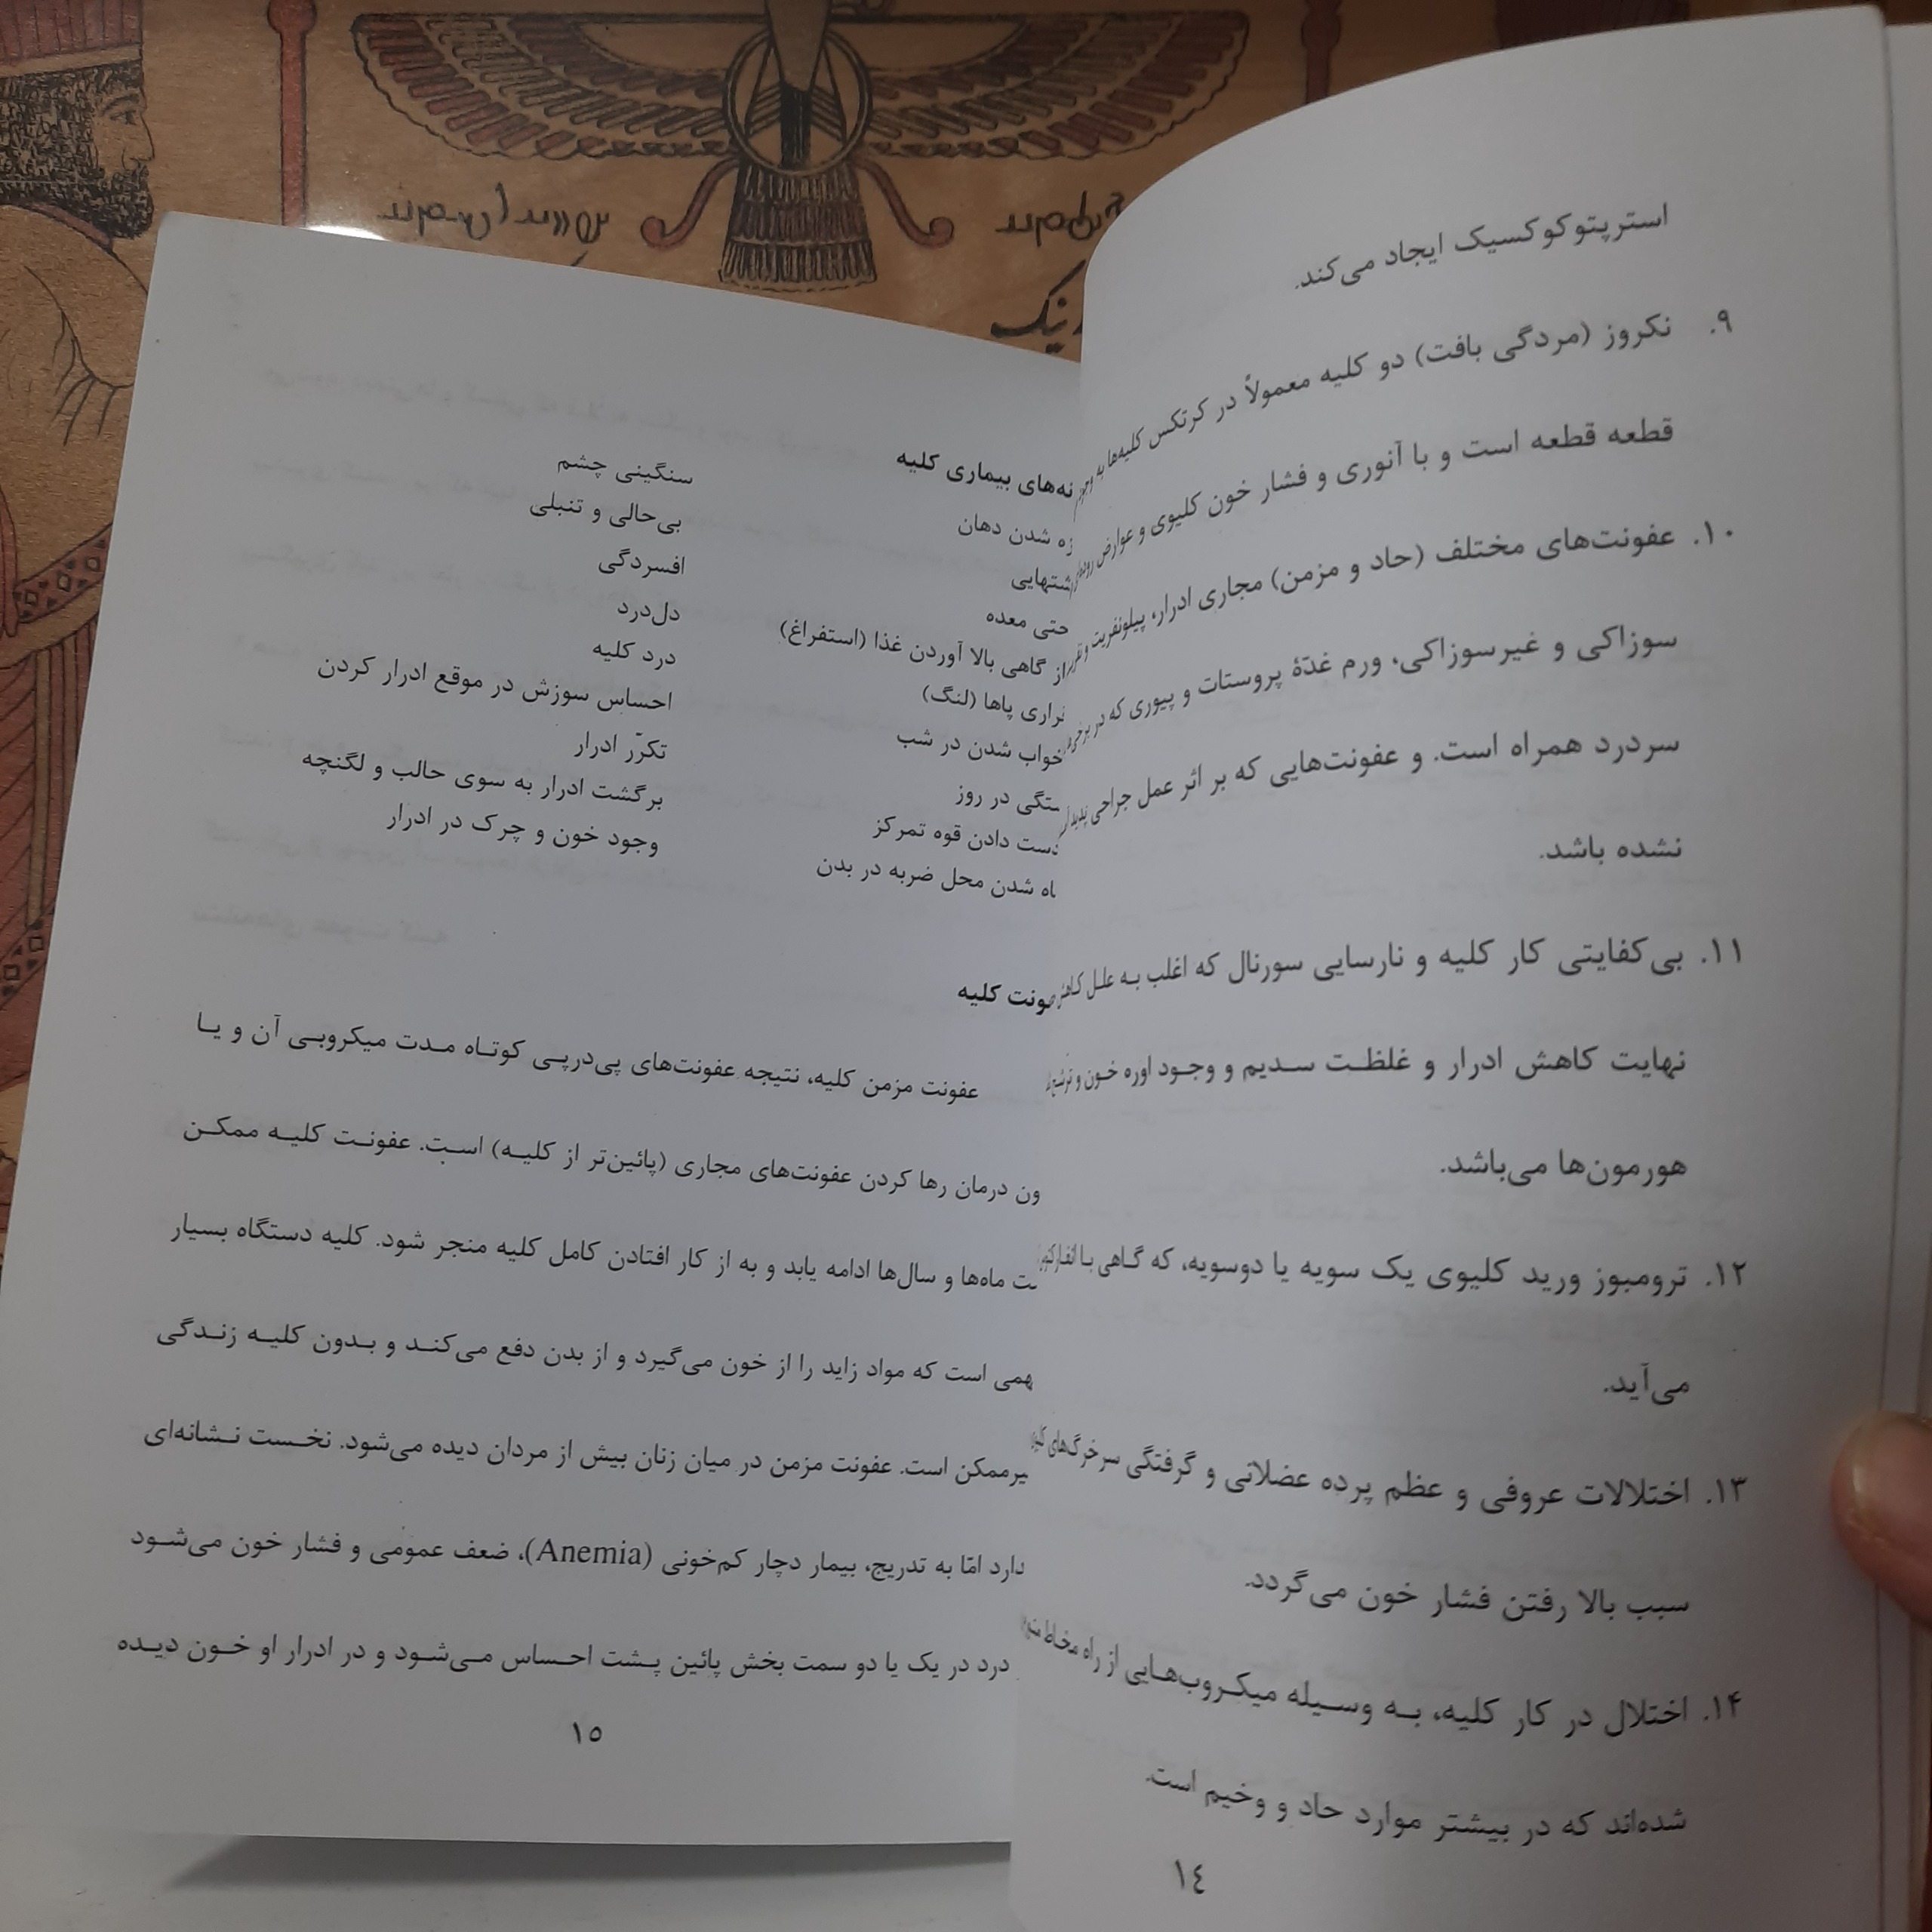 استرپتوکوکسیک ایجاد می‌کند.
۹. نکروز (مردگی بافت) دو کلیه معمولاً در کرتکس کلیه‌ها به
قطعه قطعه است و با آنوری و فشار خون کلیوی و عوارض
۱۰. عفونت‌های مختلف (حاد و مزمن) مجاری ادرار، پیلونفریت و
سوزاکی و غیرسوزاکی، ورم غدّهٔ پروستات و پیوری که در برخی
سردرد همراه است. و عفونت‌هایی که بر اثر عمل جراحی پدیدار
نشده باشد.
۱۱. بی‌کفایتی کار کلیه و نارسایی سورنال که اغلب به علل کاهش
نهایت کاهش ادرار و غلظت سدیم و وجود اوره خون و
هورمون‌ها می‌باشد.
۱۲. ترومبوز ورید کلیوی یک سویه یا دوسویه، که گاهی با
می‌آید.
۱۳. اختلالات عروقی و عظم پرده عضلانی و گرفتگی سرخرگ‌های
سبب بالا رفتن فشار خون می‌گردد.
۱۴. اختلال در کار کلیه، به وسیله میکروب‌هایی از راه مخاط
شده‌اند که در بیشتر موارد حاد و وخیم است.
۱٤
نه‌های بیماری کلیه
زه شدن دهان
شتهایی
حتی معده
از گاهی بالا آوردن غذا (استفراغ)
راری پاها (لنگ)
خواب شدن در شب
ستگی در روز
دست دادن قوه تمرکز
اه شدن محل ضربه در بدن
سنگینی چشم
بی‌حالی و تنبلی
افسردگی
دل‌درد
درد کلیه
احساس سوزش در موقع ادرار کردن
تکرّر ادرار
برگشت ادرار به سوی حالب و لگنچه
وجود خون و چرک در ادرار
ونت کلیه
عفونت مزمن کلیه، نتیجه عفونت‌های پی‌درپی کوتاه مدت میکروبی آن و یا
ون درمان رها کردن عفونت‌های مجاری (پائین‌تر از کلیه) است. عفونت کلیه ممکن
ت ماه‌ها و سال‌ها ادامه یابد و به از کار افتادن کامل کلیه منجر شود. کلیه دستگاه بسیار
همی است که مواد زاید را از خون می‌گیرد و از بدن دفع می‌کند و بدون کلیه زندگی
یرممکن است. عفونت مزمن در میان زنان بیش از مردان دیده می‌شود. نخست نشانه‌ای
دارد امّا به تدریج، بیمار دچار کم‌خونی (Anemia)، ضعف عمومی و فشار خون می‌شود
درد در یک یا دو سمت بخش پائین پشت احساس می‌شود و در ادرار او خون دیده
۱۵